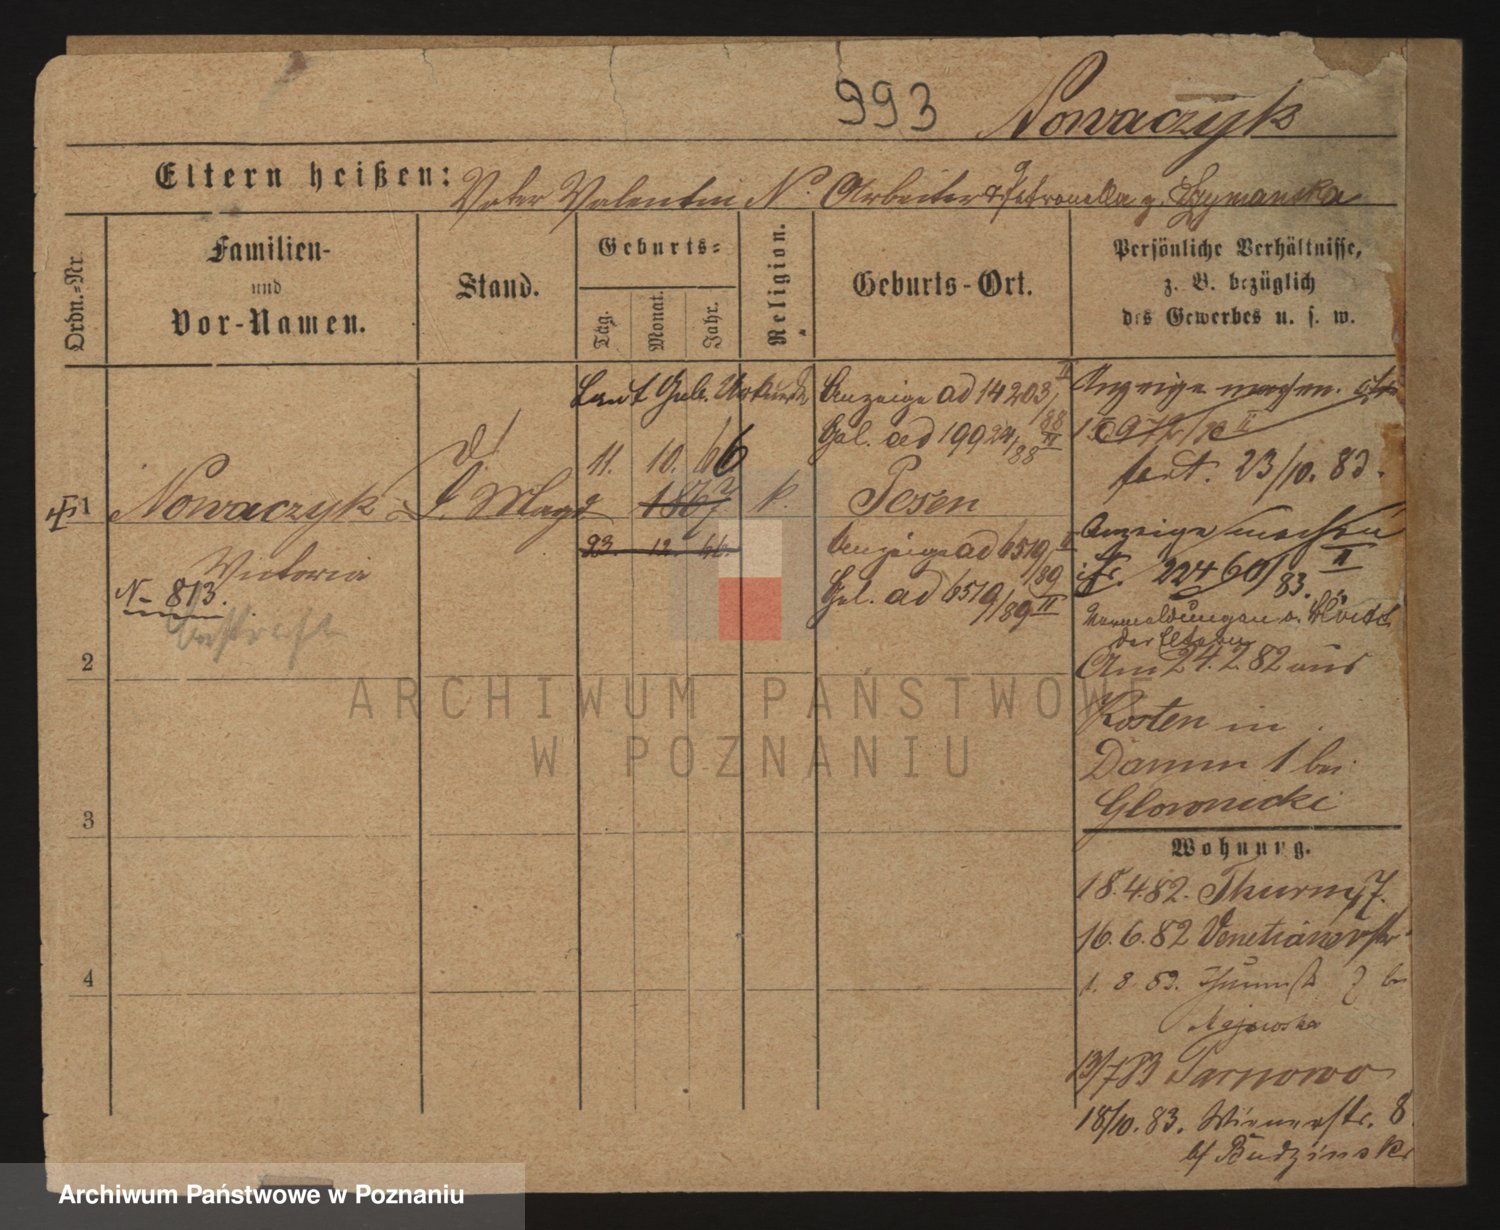 993 Nowaczyk
Eltern heißen: Vater Valentin N. Arbeiter & Petronella g. Szymanska
Ordn.-Nr.
Familien-
und
Vor-Namen.
Stand.
Geburts-
Tag.
Monat.
Jahr.
Religion.
Geburts-Ort.
Persönliche Verhältnisse,
z. B. bezüglich
des Gewerbes u. s. w.
Laut Geb. Urkunde
11. 10. 66
1 Nowaczyk d. Magd 1867 k. Posen
23 12. 66.
Victoria
N- 813.
Anzeige ad 14203/88 II
Gel. ad 19924/88 II
Anzeige ad 6519/89 II
Gel. ad 6519/89 II
Anzeige machen.
fort. 23/10. 83.
Anzeige machen
22460/83. II
der Eltern
Am 24.2.82 aus
Kosten in
Damm 1 bei
Glownicki
Wohnung.
18.4.82. Thurmstr 7.
16.6.82 Venetianerstr
1. 8. 82. Thurmstr 7 bei
Majewska
13/7 83 Tarnowo
18/10. 83. Wienerstr. 8
bf Budzinski
2
3
4
ARCHIWUM PAŃSTWOWE
W POZNANIU
Archiwum Państwowe w Poznaniu